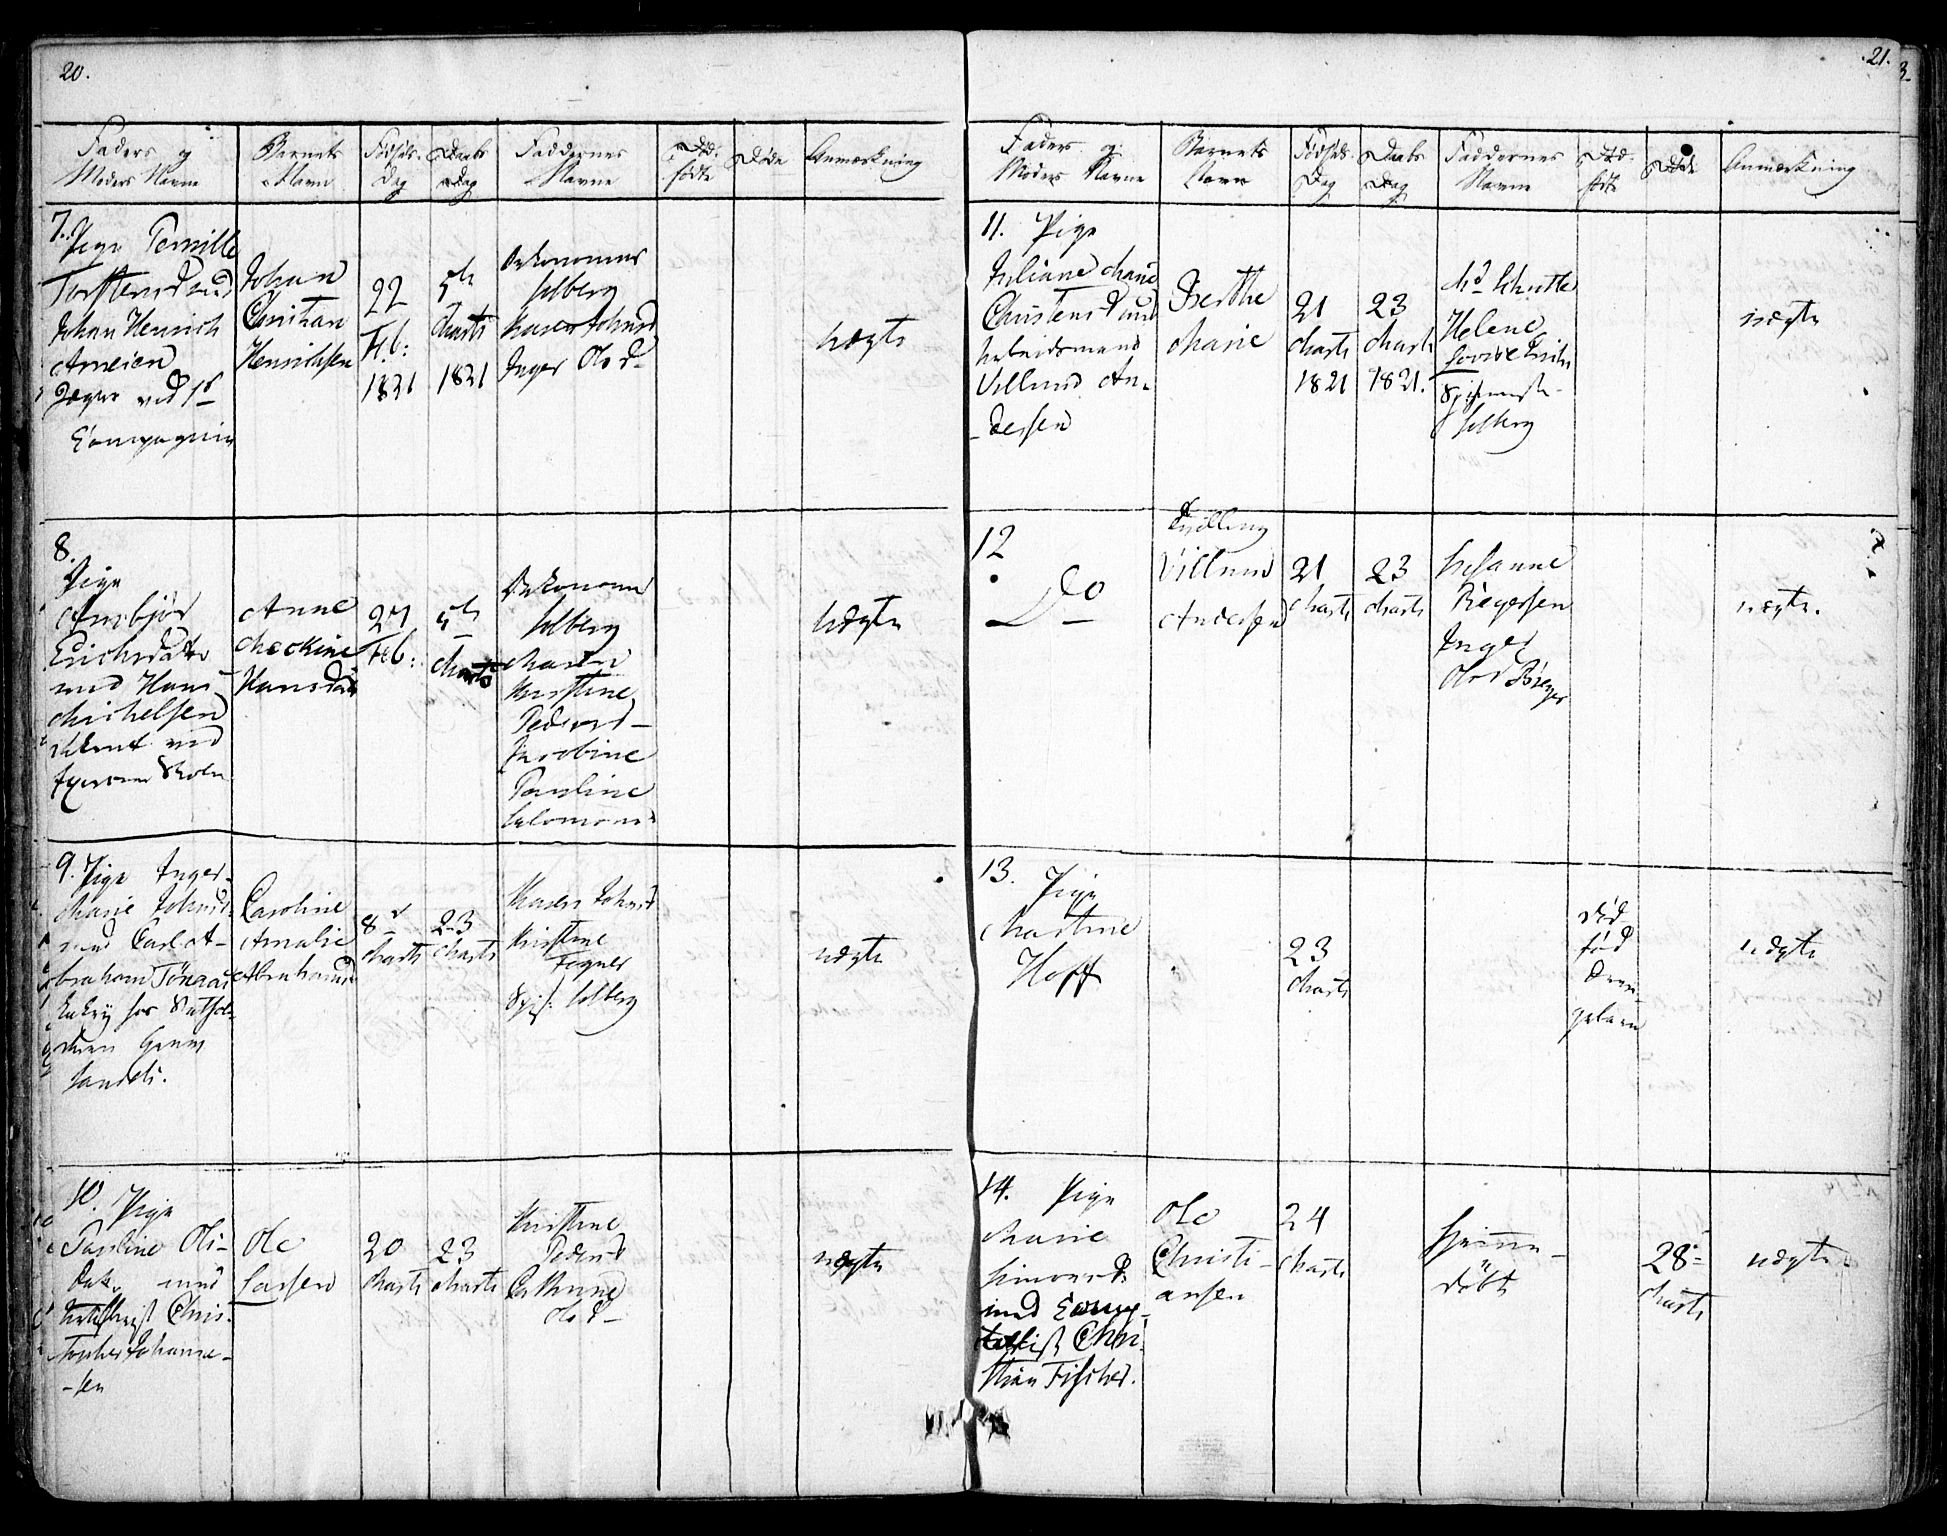 20.
Faders og
Moders Navne
Barnets
Navn
Fødsels
Dag
Daabs
Dag
Faddernes
Navne
Død-
fødte
Døde
Anmærkning
7. Pige Pernille
Torstensd med
Johan Henrich
Jæger ved 1ste
Compagnie
Johan
Christian
Henrichsen
22
Feb:
1821
5te
Marts
1821
Oekonomus
Solberg
Maren Johnsd
Inger Olsd
uægte
8.
Pige
Erichsdatter
med Hans
Michelsen
ved
Anne
Mockine
Hansdatter
27
Feb:
5te
Marts
Oekonom
Solberg
Maren
Kirstine
Pedersd
Jacobine
Pauline
Salomons
uægte
9. Pige Inger
Marie Johnsd.
med Carl A-
braham
hos
Caroline
Amalie
Abrahamsd
8de
Marts
23
Marts
Maren Johnsd
Kirstine
Fegner
Solberg
uægte
10. Pige
Pauline Ols-
dat. med
Chris-
topher Johanne-
-sen
Ole
Lassen
20
Marts
23
Marts
Kirstine
Pedersd
Cathrine
Olsd
uægte
21.
Faders og
Moders Navne
Barnets
Navn
Fødsels
Dag
Daabs
Dag
Faddernes
Navne
Død-
fødte
Døde
Anmærkning
11. Pige
Juliane Marie
Christensd med
Arbeidsmand
Villum An-
-dersen
Berthe
Marie
21
Marts
1821
23
Marts
1821.
Md Schutte
Helene
Solberg
uægte
12
Do
Tvilling
Villum
Andersen
21
Marts
23
Marts
Susanne
Birgersen
Inger
Olsd Birger
uægte.
13. Pige
Martine
Hoff
23
Marts
død
fød
Drenge-
barn
uægte
14. Pige
Marie
Simonsd.
med
Chri-
stian Fischer.
Ole
Christi-
ansen
24
Marts
Hjemme-
døbt
28de
Marts
uægte